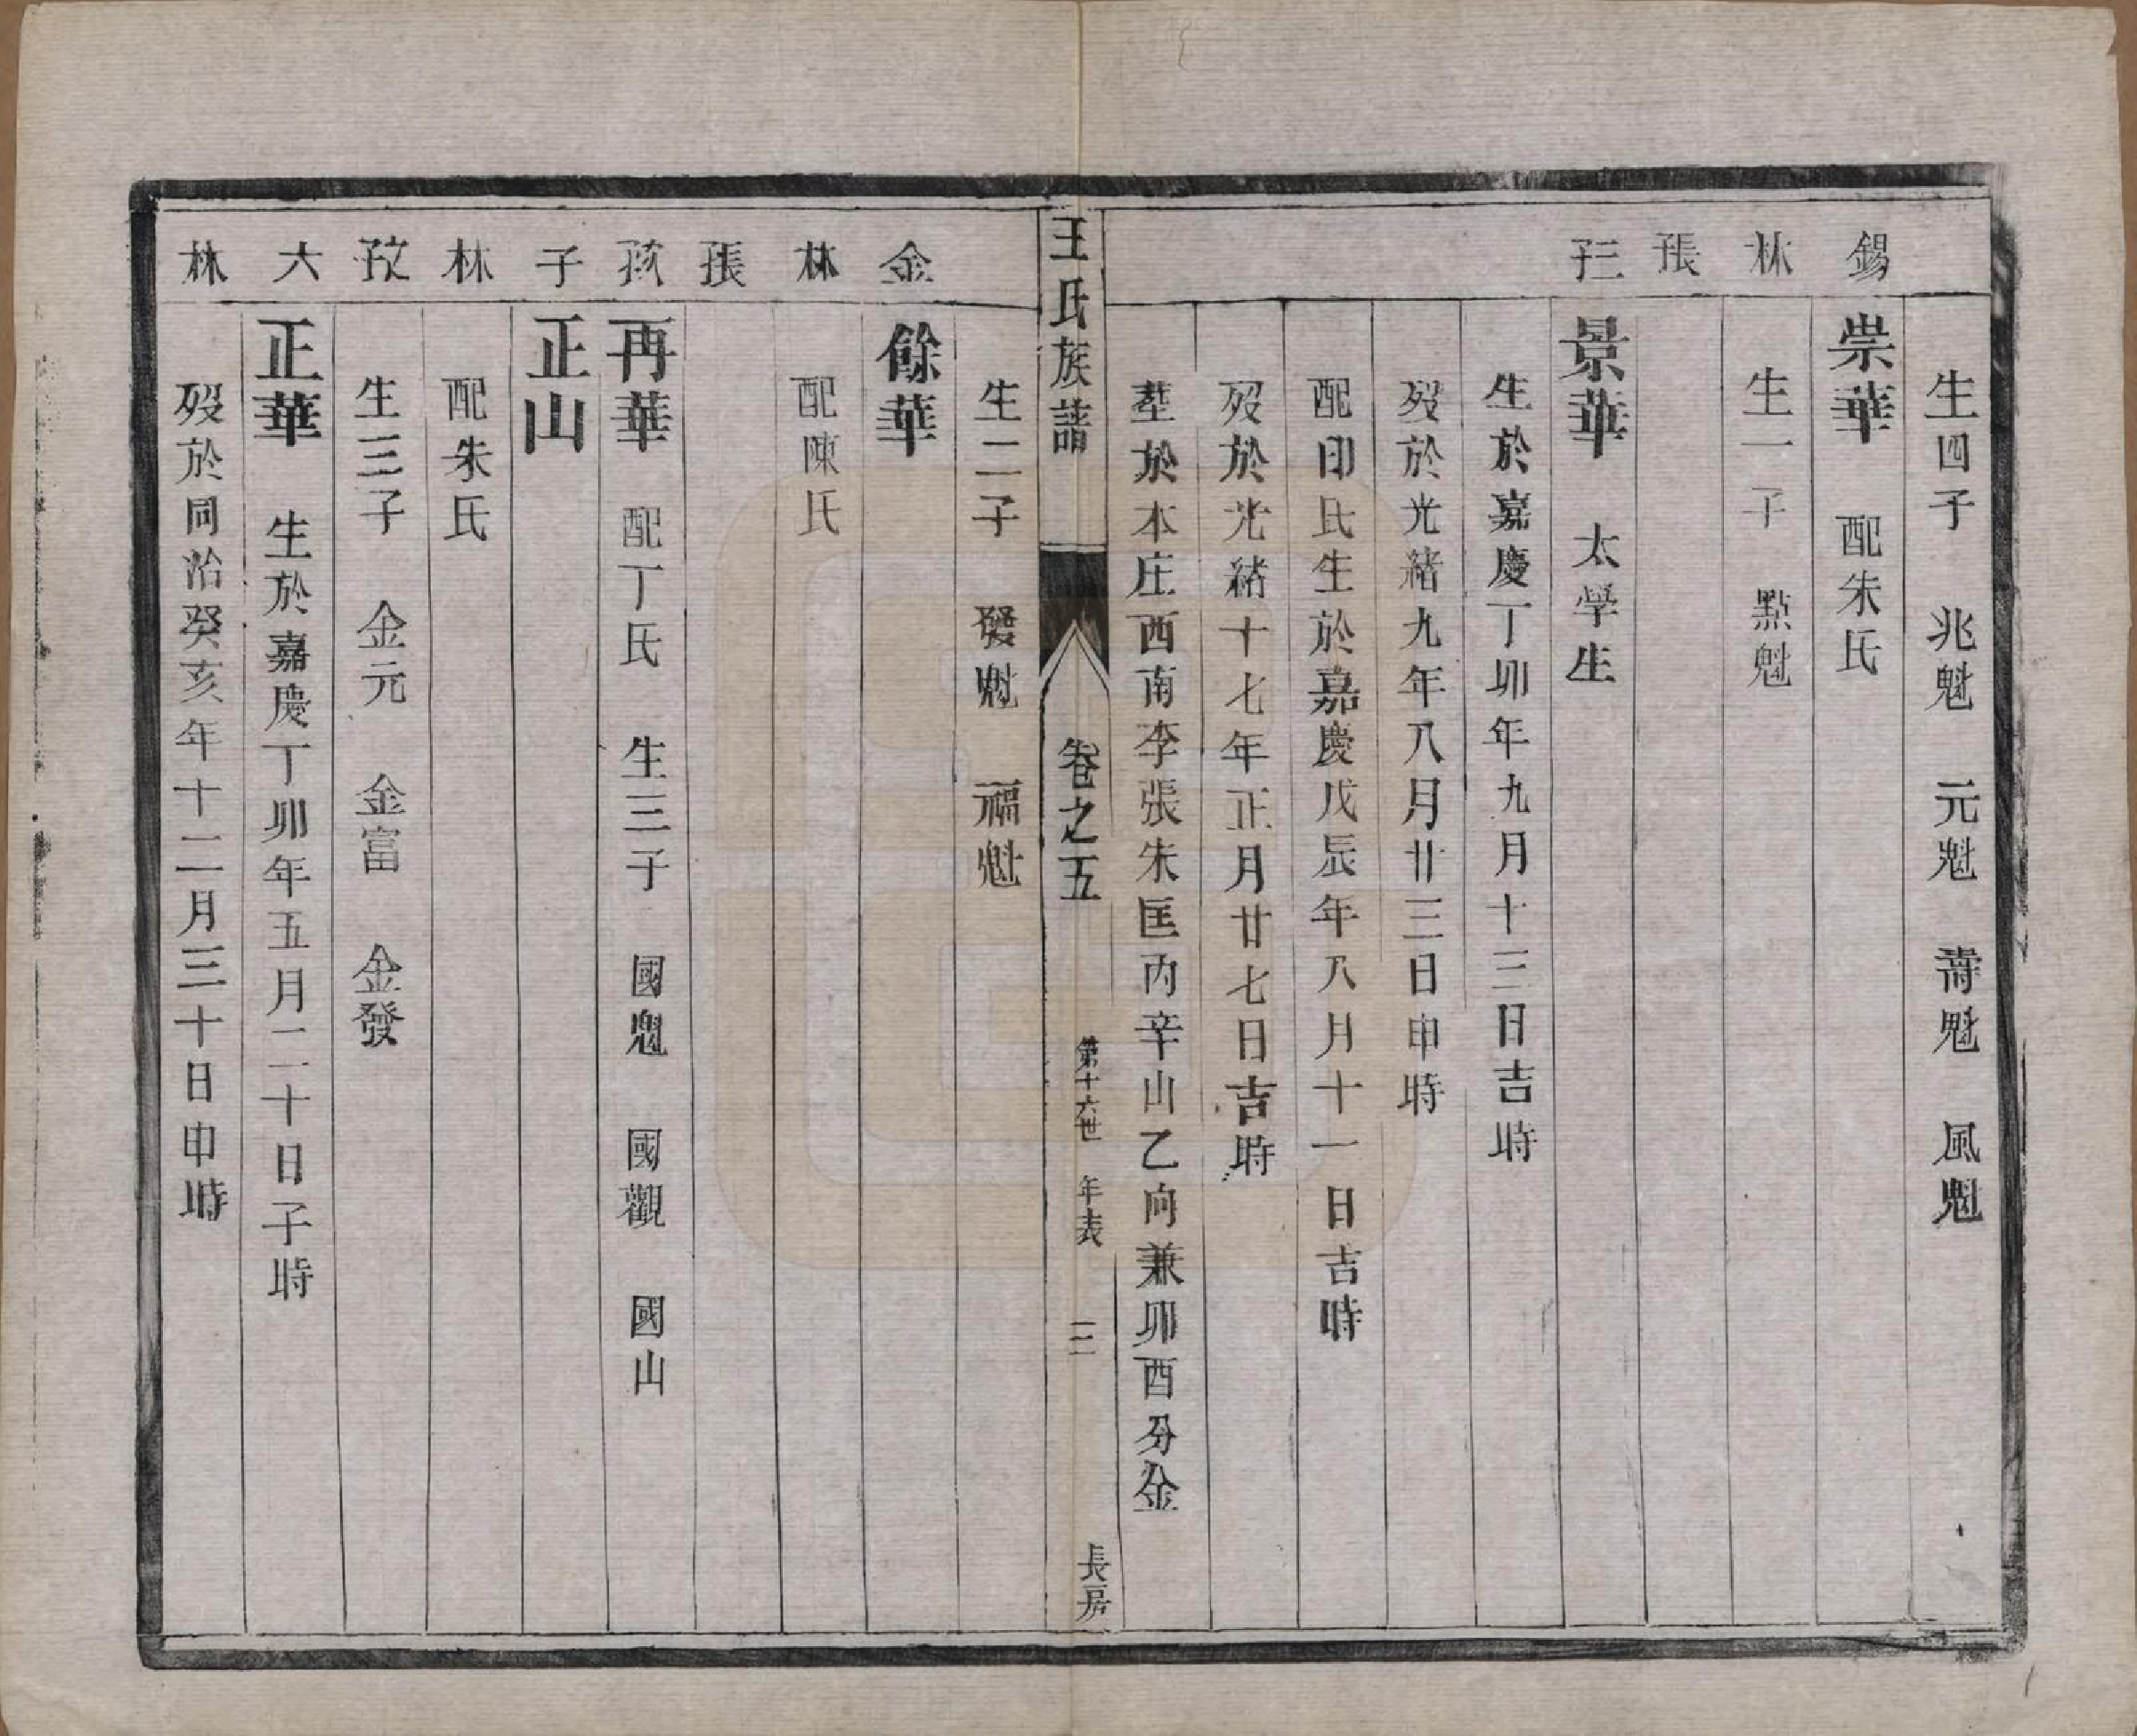 生四子 兆魁 元魁 壽魁 風魁
錫 崇華 配朱氏
林 生一子 點魁
張
景華 太學生
生於嘉慶丁卯年九月十三日吉時
歿於光緒九年八月廿三日申時
配印氏生於嘉慶戊辰年八月十一日吉時
歿於光緒十七年正月廿七日吉時
塟於本庄西南李張朱匡丙辛山乙向兼卯酉分金
王氏族譜 卷之五 第十六世 年表 三 長房
生二子 發魁 福魁
金 餘華
林 配陳氏
張
再華 配丁氏 生三子 國魁 國觀 國山
子 正山
林 配朱氏
生三子 金元 金富 金發
大 正華 生於嘉慶丁卯年五月二十日子時
林 歿於同治癸亥年十二月三十日申時